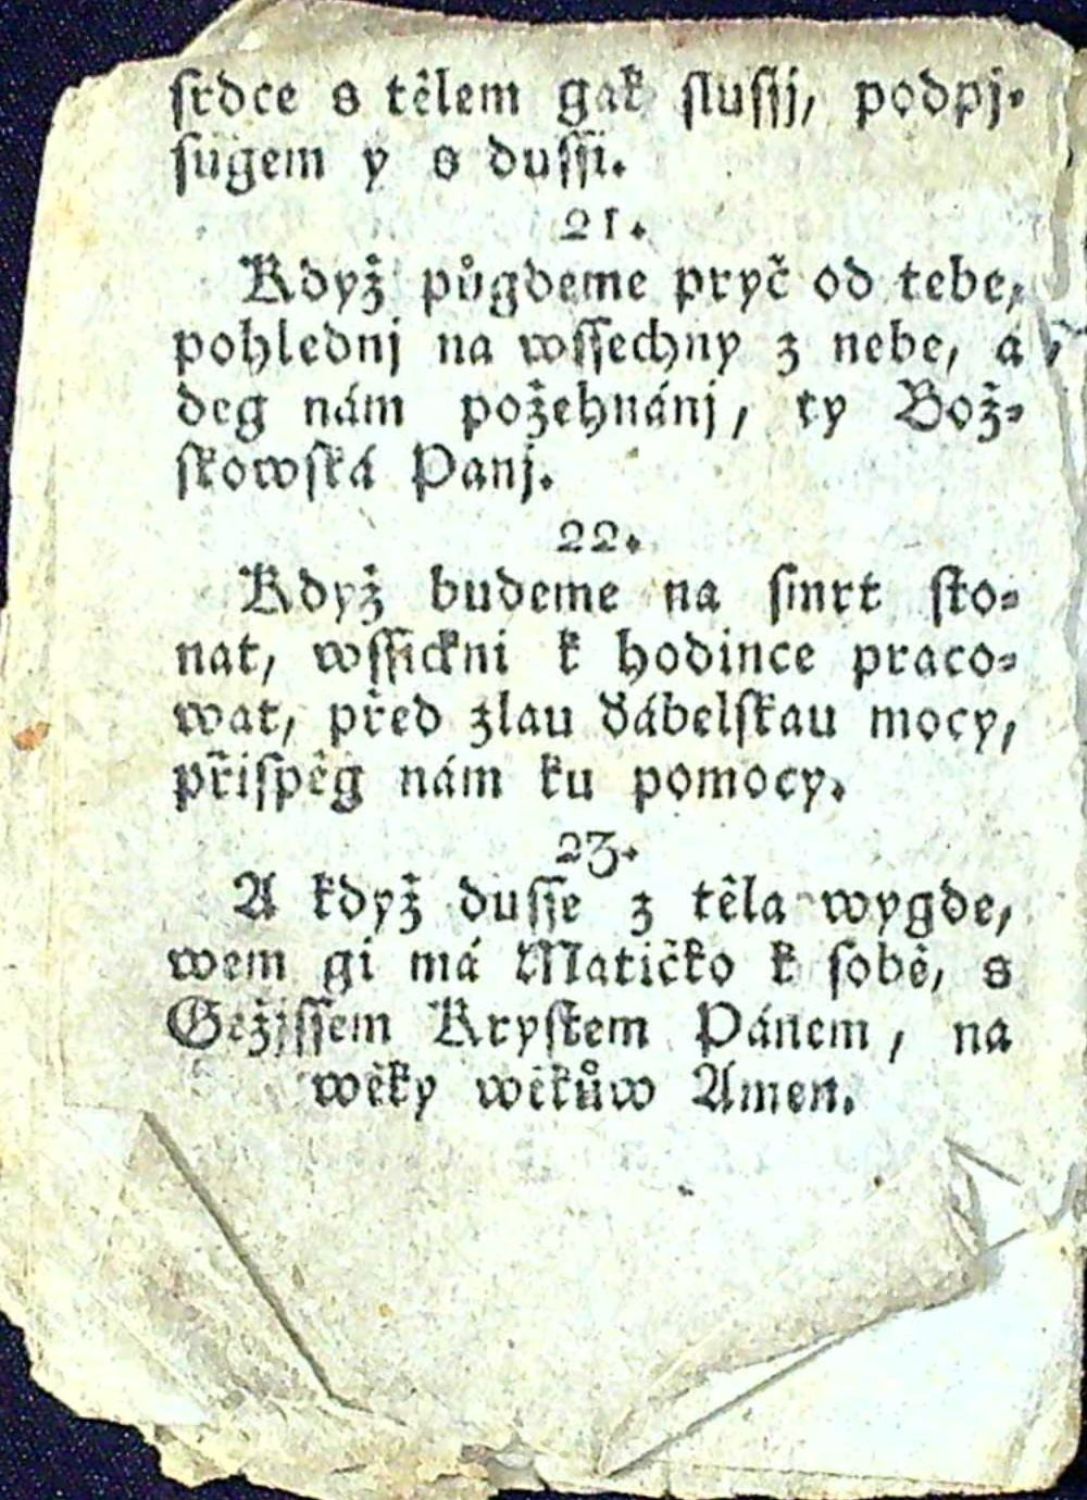 ſrdce s tělem gak ſluſſj, podpj⸗
ſugem y s duſſi.
21.
Když půgdeme pryč od tebe,
pohlednj na wſſechny z nebe, a
deg nám požehnánj, ty Bož⸗
ſkowſká Panj.
22.
Když budeme na ſmrt ſto⸗
nat, wſſickni k hodince praco⸗
wat, před zlau ďábelſkau mocy,
přiſpěg nám ku pomocy.
23.
A když duſſe z těla wygde,
wem gi má Matičko k ſobě, s
Gežjſſem Kryſtem Pánem, na
wěky wěkůw Amen.